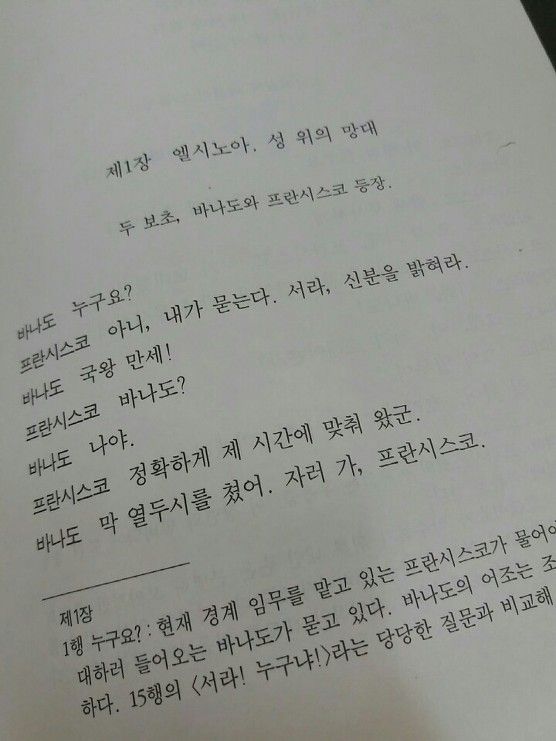 제1장 엘시노아. 성 위의 망대
두 보초, 바나도와 프란시스코 등장.
바나도 누구요?
프란시스코 아니, 내가 묻는다. 서라, 신분을 밝혀라.
바나도 국왕 만세!
프란시스코 바나도?
바나도 나야.
프란시스코 정확하게 제 시간에 맞춰 왔군.
바나도 막 열두시를 쳤어. 자러 가, 프란시스코.
제1장
1행 누구요?: 현재 경계 임무를 맡고 있는 프란시스코가 물어야
대하러 들어오는 바나도가 묻고 있다. 바나도의 어조는 조
하다. 15행의 〈서라! 누구냐!〉라는 당당한 질문과 비교해